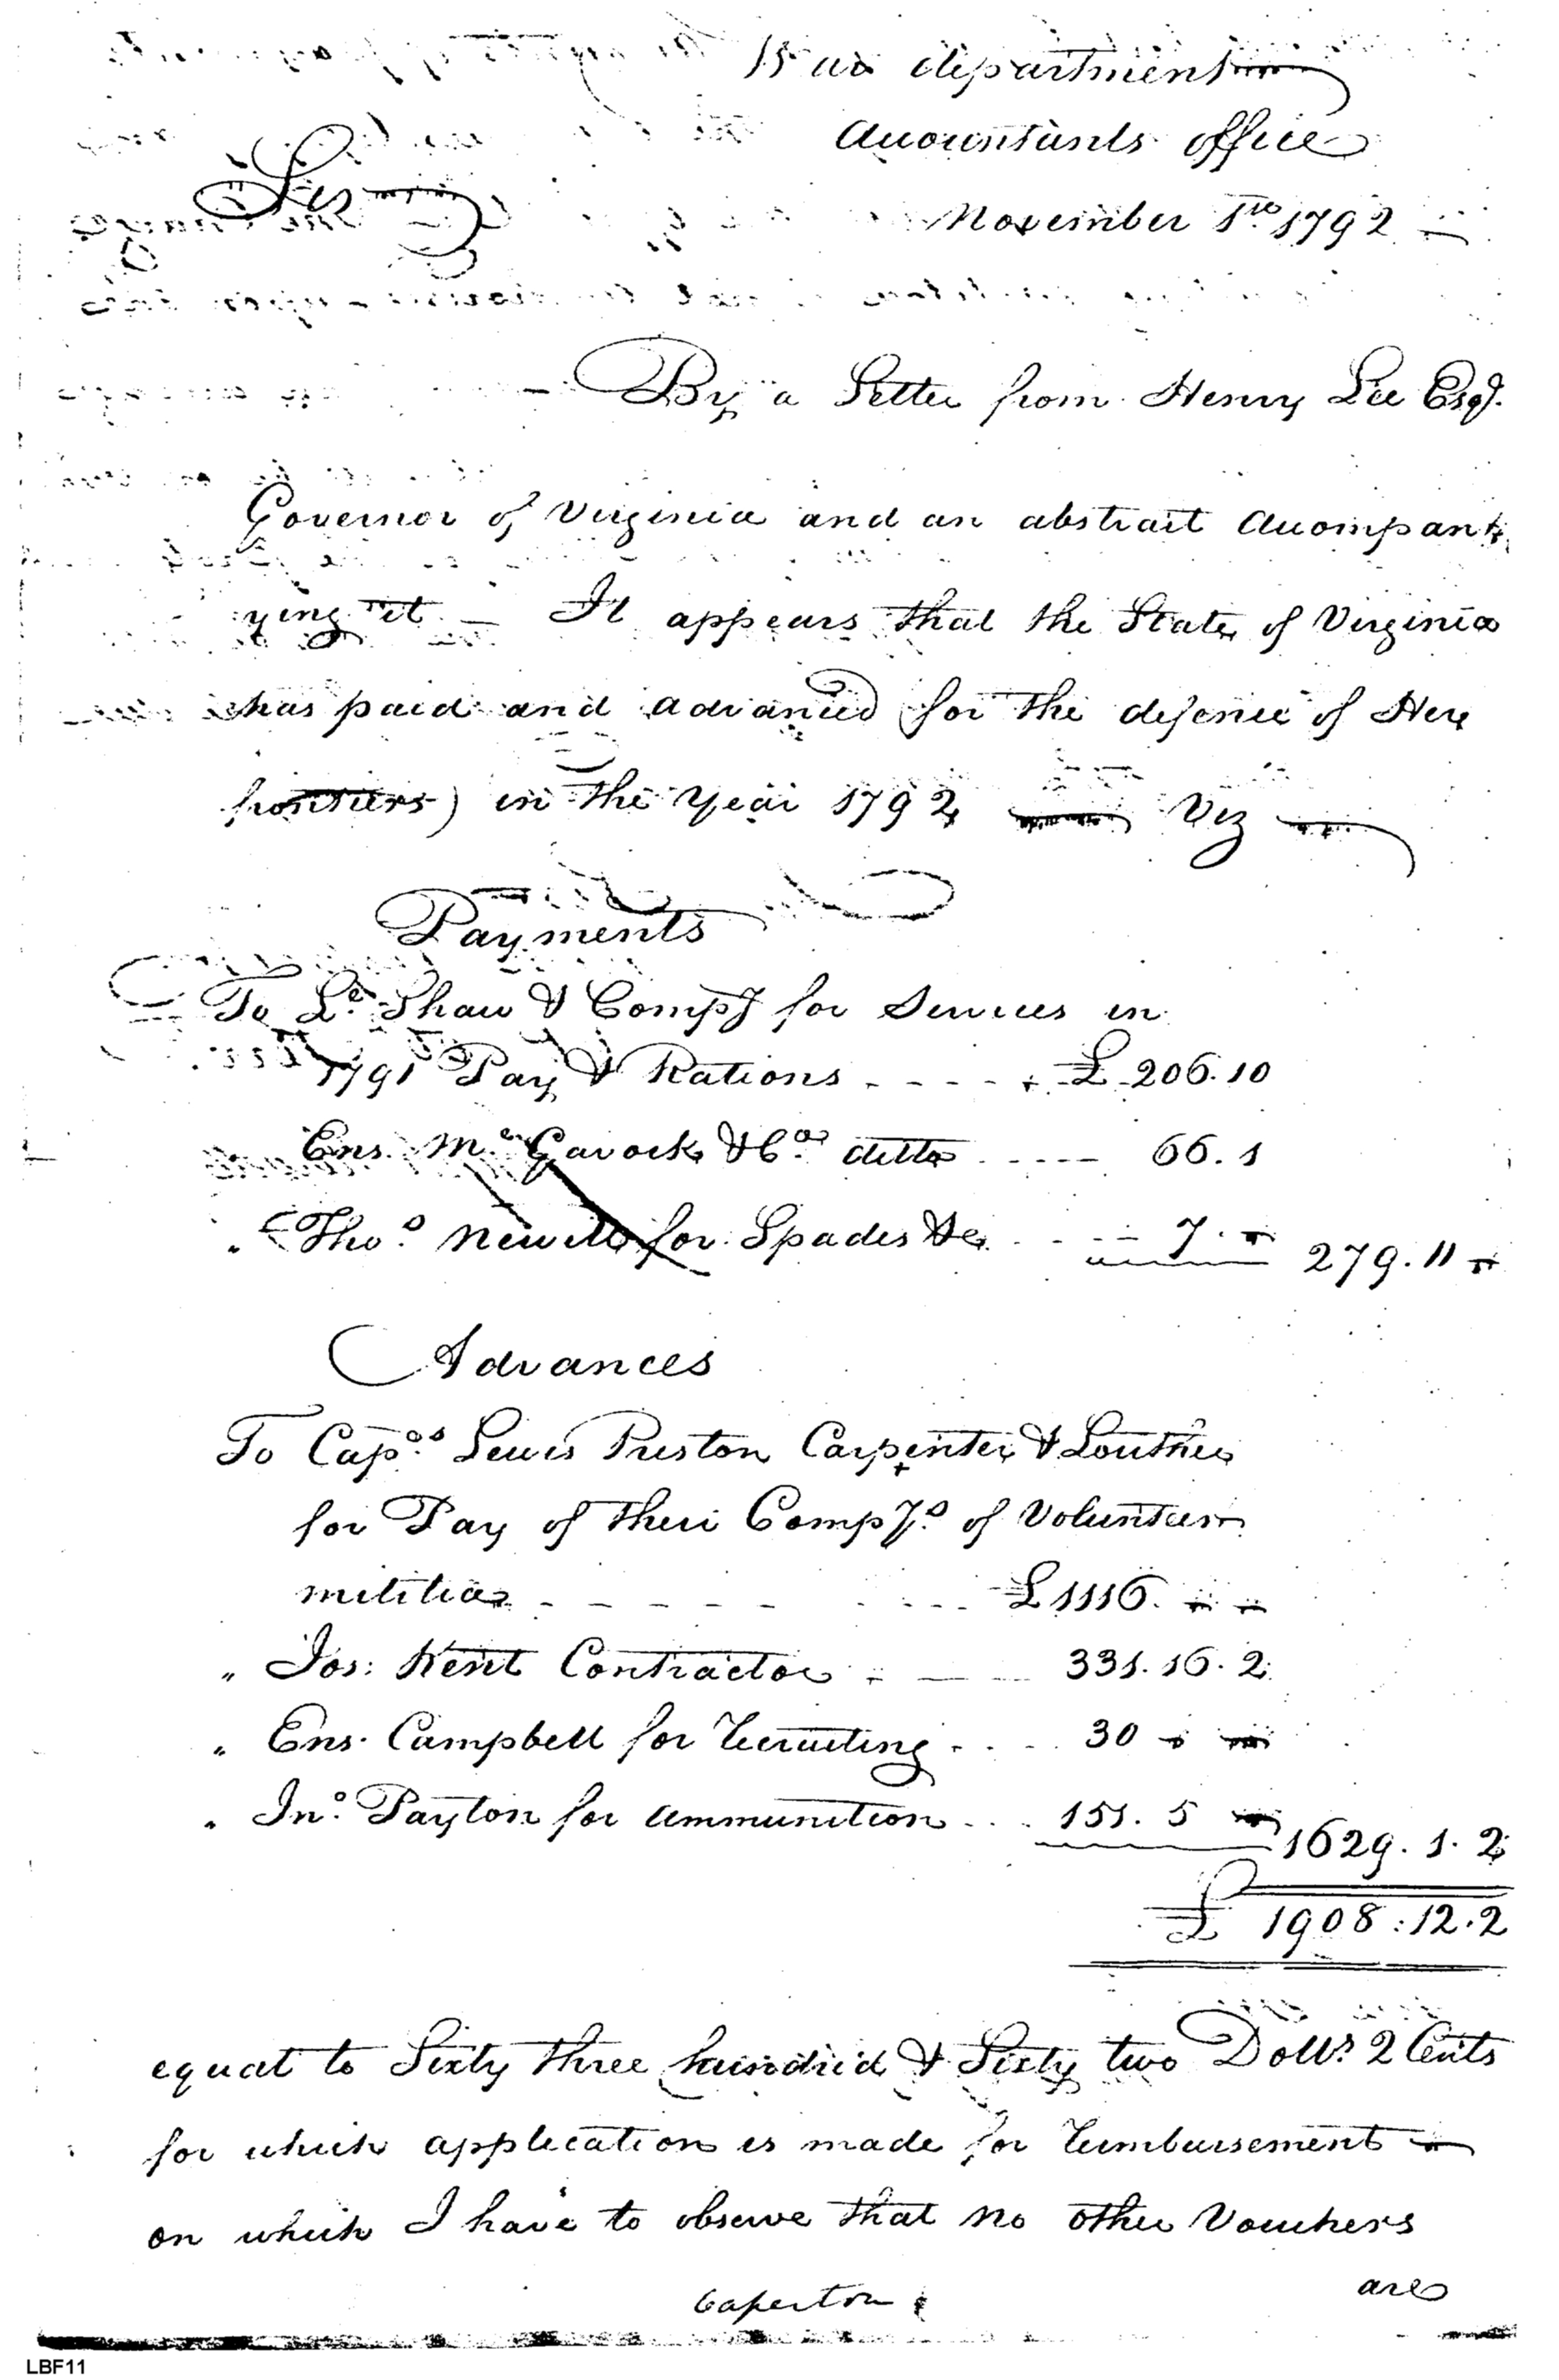 War department
Accountants office
Sir
November 1st 1792
By a Letter from Henry Lee Esqr.
Governor of Virginia and an abstract accompan
ying it – It appears that the State of Virginia
has paid and advanced for the defence of Her
frontiers) in the Year 1792 Viz
Payments
To Lt. Shaw & Compy for Services in
1791 Pay & Rations - - - - £ 206.10
Ens. Mc Gavock & Co. ditto ---- 66.1
" Thos. Newell for Spades &c 7. - 279.11 -
Advances
To Capts. Lewis Preston Carpenter & Louther
for Pay of their Compys. of Volunteer
militia - - - - - £1116. - -
" Jos: Kent Contractor - — 331.16.2
" Ens. Campbell for recruiting - - 30 - -
" Jno. Payton for ammunition . . . 151. 5 - 1629. 1. 2
£ 1908:12.2
equal to Sixty three hundred & Sixty two Dolls. 2 Cents
for which application is made for reimbursement —
on which I have to observe that no other Vouchers
are
Caperton
LBF11